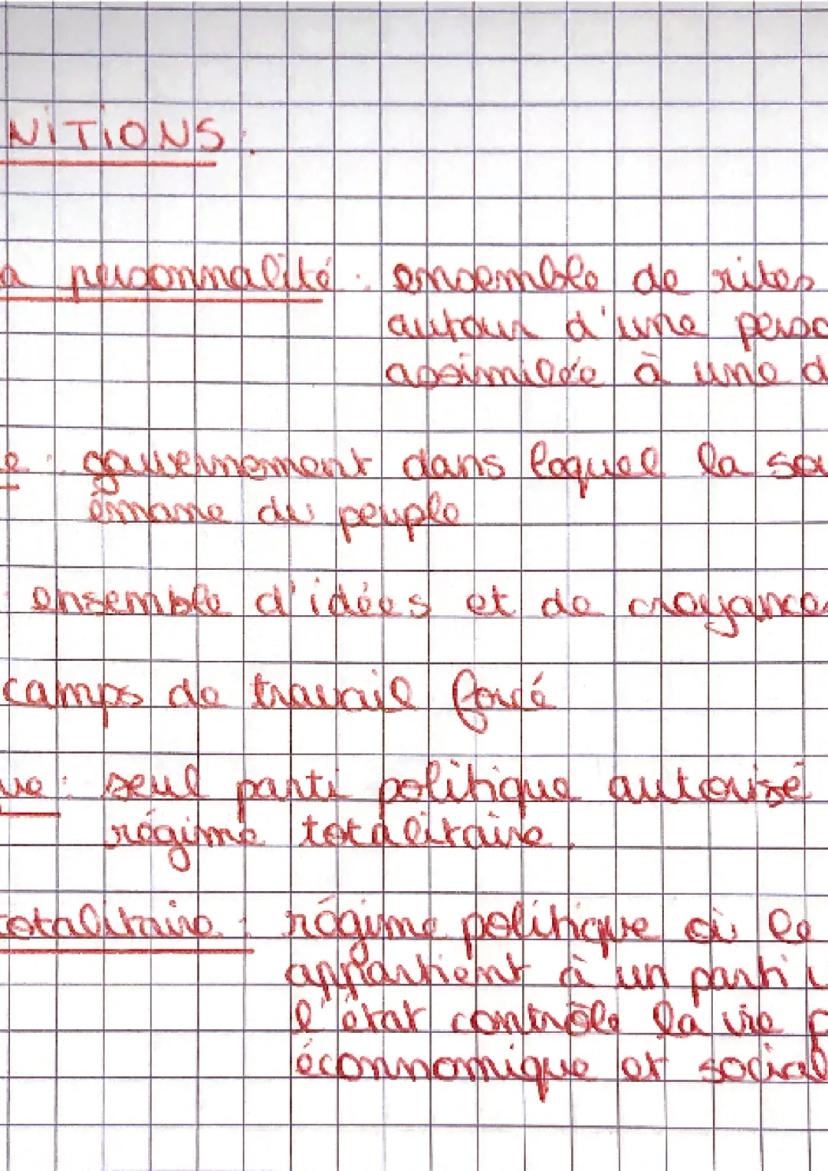 NITIONS.
a personnalité : ensemble de rites
autour d'une perso
assimilée à une d
e : gouvernement dans lequel la sou
émane du peuple
: ensemble d'idées et de croyances
camps de travail forcé
ue : seul parti politique autorisé
régime totalitaire.
otalitaire : régime politique où le
appartient à un parti u
l'état contrôle la vie p
éconnomique et social